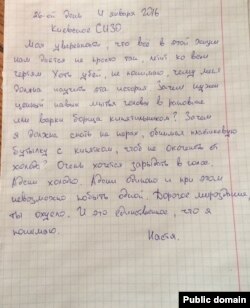 26-ой день 4 января 2016
Киевское СИЗО
Моя уверенность, что все в этой жизни
нам дается не просто так, летит ко всем
чертям. Хоть убей, не понимаю, чему меня
должна научить эта история. Зачем нужен
ценный навык мытья головы в раковине
или варки борща кипятильником? Зачем
я должна спать на нарах, обнимая пластиковую
бутылку с кипятком, чтоб не окоченеть от
холода? Очень хочется зарыдать в голос.
Адски холодно. Адски одиноко и при этом
невозможно побыть одной. Дорогое мироздание,
ты охуело. И это единственное, что я
понимаю.
Настя.
Public domain